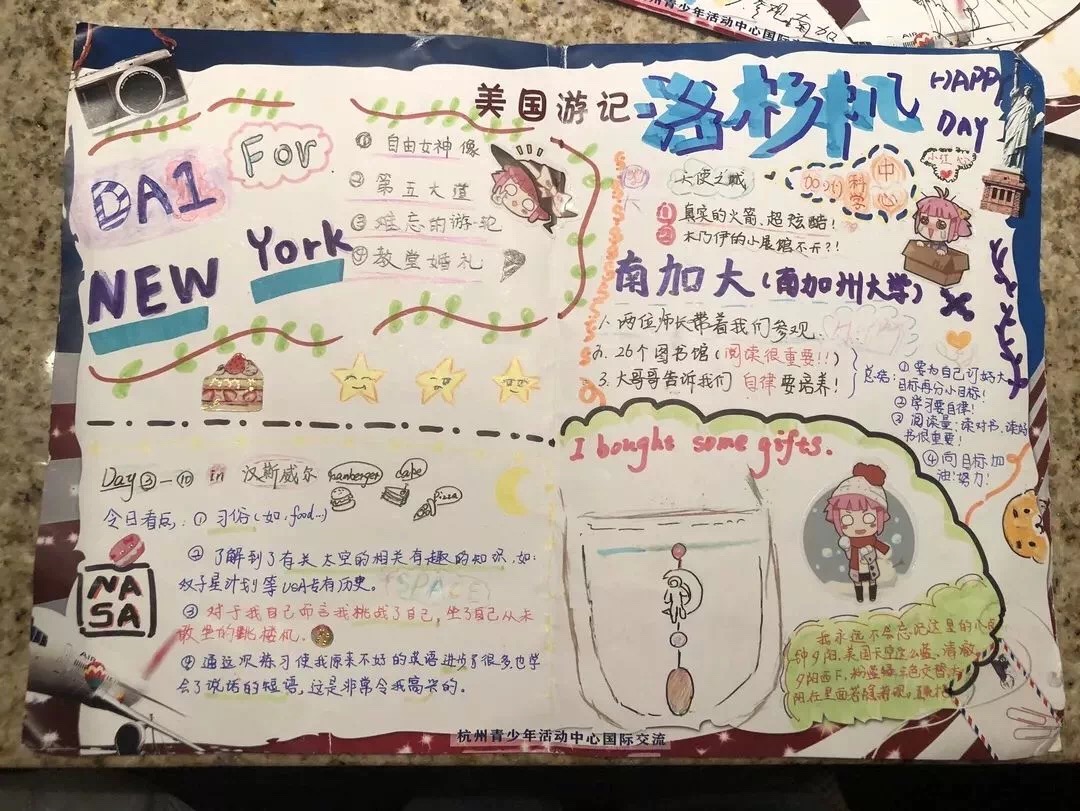 美国游记
洛杉机
HAPP
DAY
DA1
For
NEW York
① 自由女神像
② 第五大道
③ 难忘的游轮
④ 教堂婚礼
天使之城
加州科学中心
小红心
① 真实的火箭.超炫酷!
② 木乃伊的小展馆不开?!
南加大(南加州大学)
1. 两位师长带着我们参观.
2. 26个图书馆(阅读很重要!!)
3. 大哥哥告诉我们 自律要培养!
总结:
① 要为自己订好大
目标再分小目标!
② 学习要自律!
③ 阅读量:读对书.读好
书很重要!
④ 向目标加
油!努力!
Day③—⑩ in 汉斯威尔
hamberger
cake
pizza
今日看点:① 习俗(如.food...)
② 了解到了有关太空的相关有趣的知识,如:
双子星计划等USA专有历史。
SPACE
③ 对于我自己而言我挑战了自己,坐了自己从未
敢坐的跳楼机.
④ 通过次练习使我原来不好的英语进步了很多也学
会了说话的短语,这是非常令我高兴的。
NASA
I bought some gifts.
我永远不会忘记这里的八点
钟夕阳.美国天空这么蓝、清澈
夕阳西下,粉蓝绿三色交替,
阳在里面若隐若现,
杭州青少年活动中心国际交流
AIR
杭州青少年活动中心国际交
参观南加